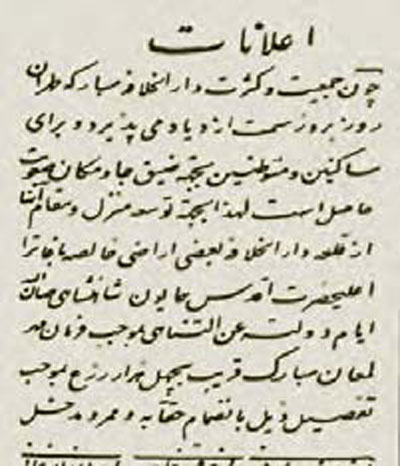 اعلانات
چون جمعیت و کثرت دارالخلافه مبارکه طهران
روز بروز سمت ازدیاد می پذیرد و برای
ساکنین و متوطنین بجهة ضیق جا و مکان صعوبت
حاصل است لهذا بجهة توسعه منزل و مقام آنها
از قلعه دارالخلافه بعضی اراضی خالصه باغات را
اعلیحضرت اقدس همایون شاهنشاهی صان الله
ایام دولته عن التناهی بموجب فرمان مهر
لمعان مبارک قریب بچهل هزار زرع بموجب
تفصیل ذیل بانضمام حقابه و ممر و مدخل